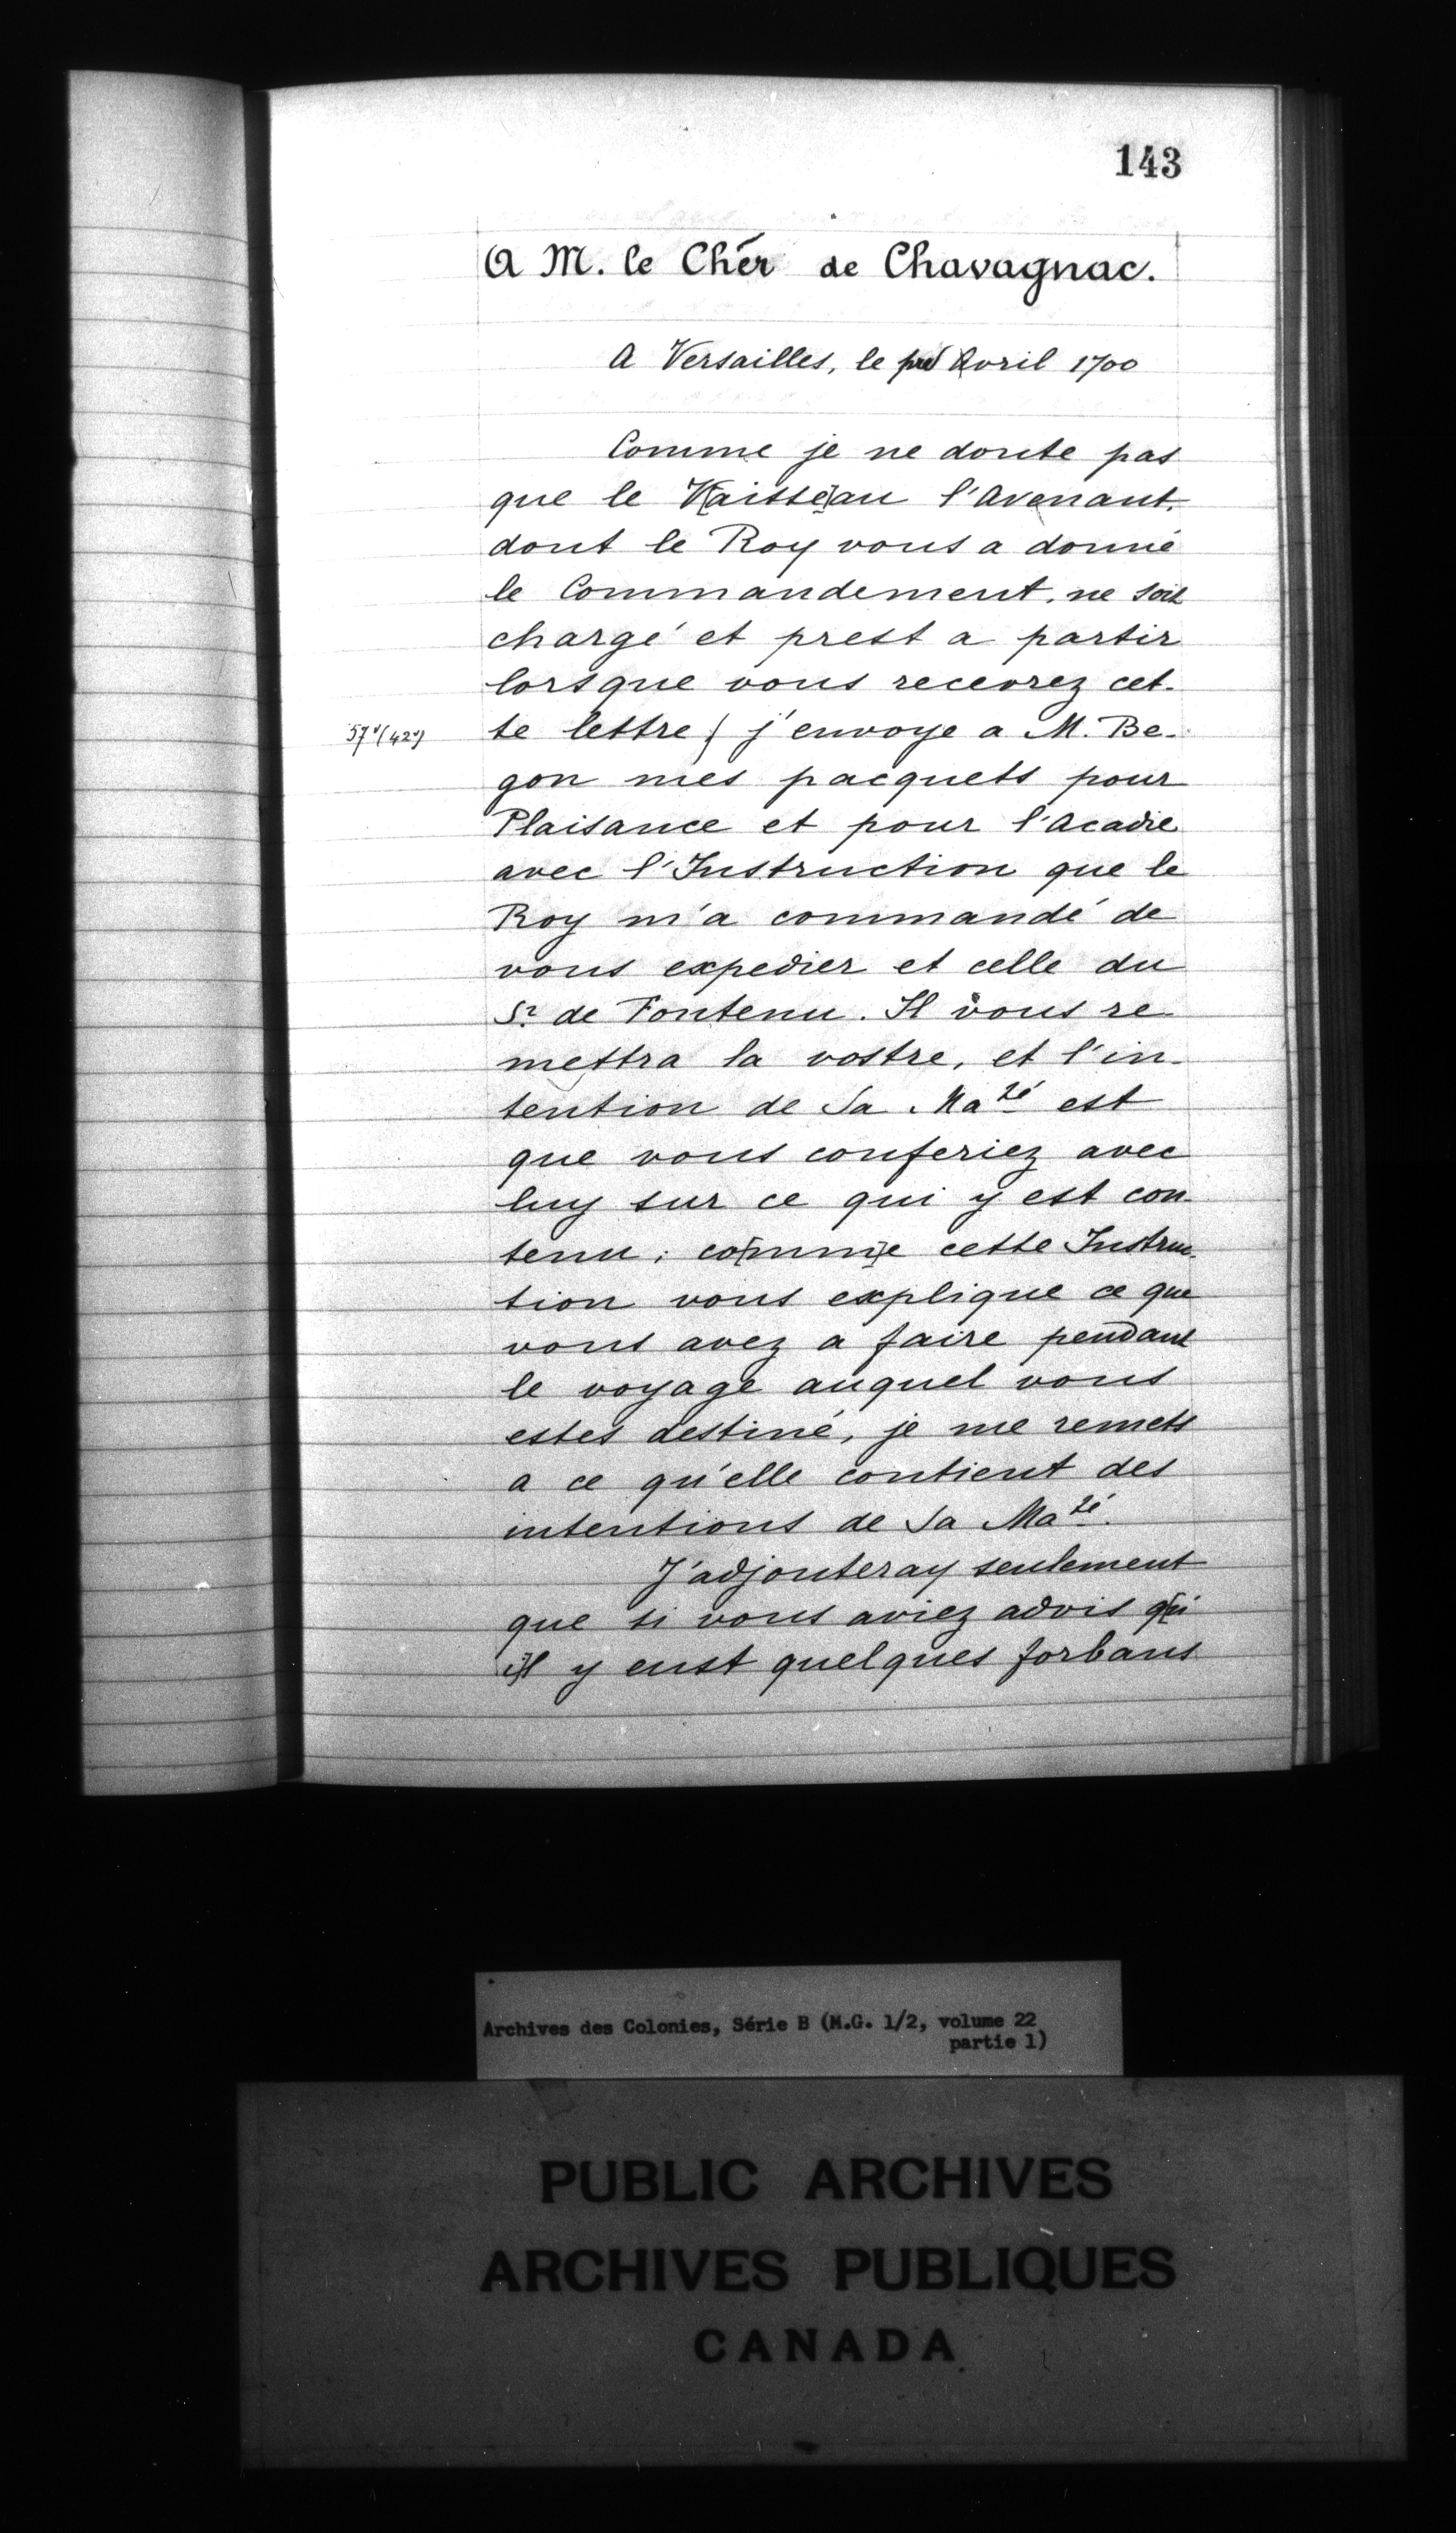 143
A M. le Chér de Chavagnac.
A Versailles, le pre Avril 1700
Comme je ne doute pas
que le V[aisse]au l'Avenant,
dont le Roy vous a donné
le Commandement, ne soit
chargé et prest a partir
lorsque vous recevrez cet-
57v (42v)
te lettre / j'envoye a M. Be-
gon mes pacquets pour
Plaisance et pour l'Acadie
avec l'Instruction que le
Roy m'a commandé de
vous expedier et celle du
Sr de Fontenu. Il vous re-
mettra la vostre, et l'in-
tention de Sa Maté est
que vous conferiez avec
luy sur ce qui y est con-
tenu; co[mm]e cette Instruc-
tion vous explique ce que
vous avez a faire pendant
le voyage auquel vous
estes destiné, je me remets
a ce qu'elle contient des
intentions de Sa Maté.
J'adjouteray seulement
que si vous aviez advis q[u'
i]l y eust quelques forbans
Archives des Colonies, Série B (M.G. 1/2, volume 22
partie 1)
PUBLIC ARCHIVES
ARCHIVES PUBLIQUES
CANADA